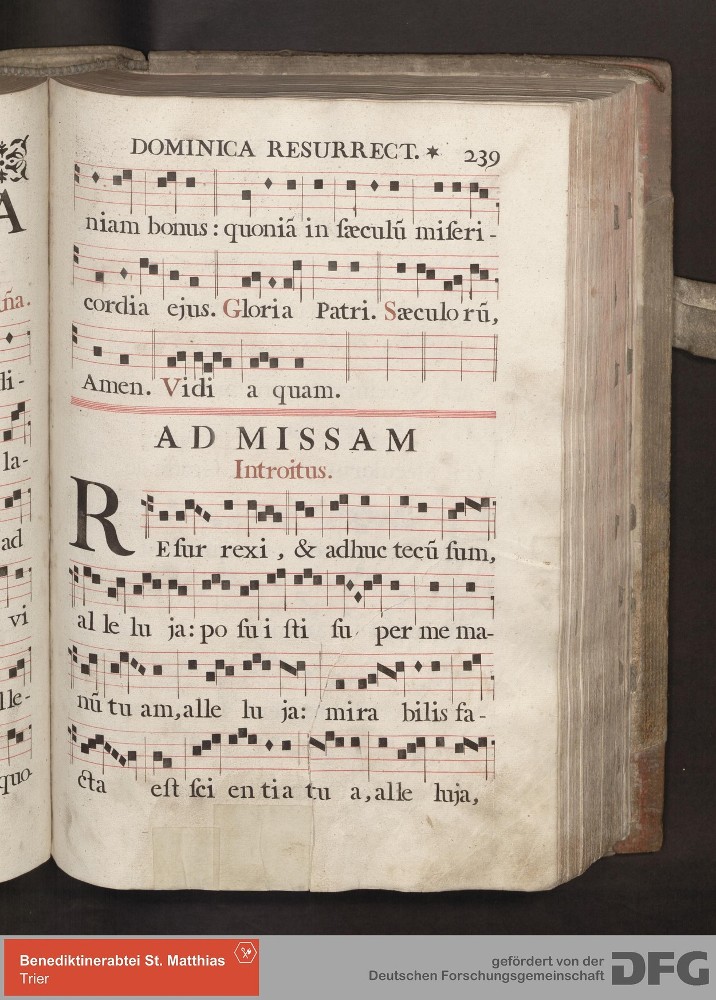 A
ña.
li-
la-
ad
vi
lle-
quo-
DOMINICA RESURRECT. ✶ 239
niam bonus: quoniã in ſæculũ miſeri-
cordia ejus. Gloria Patri. Sæculo rũ,
Amen. Vidi a quam.
AD MISSAM
Introitus.
REſur rexi, & adhuc tecũ ſum,
al le lu ja: po ſu i ſti ſu per me ma-
nũ tu am, alle lu ja: mira bilis fa-
cta eſt ſci en tia tu a, alle luja,
Benediktinerabtei St. Matthias
Trier
gefördert von der
Deutschen Forschungsgemeinschaft
DFG